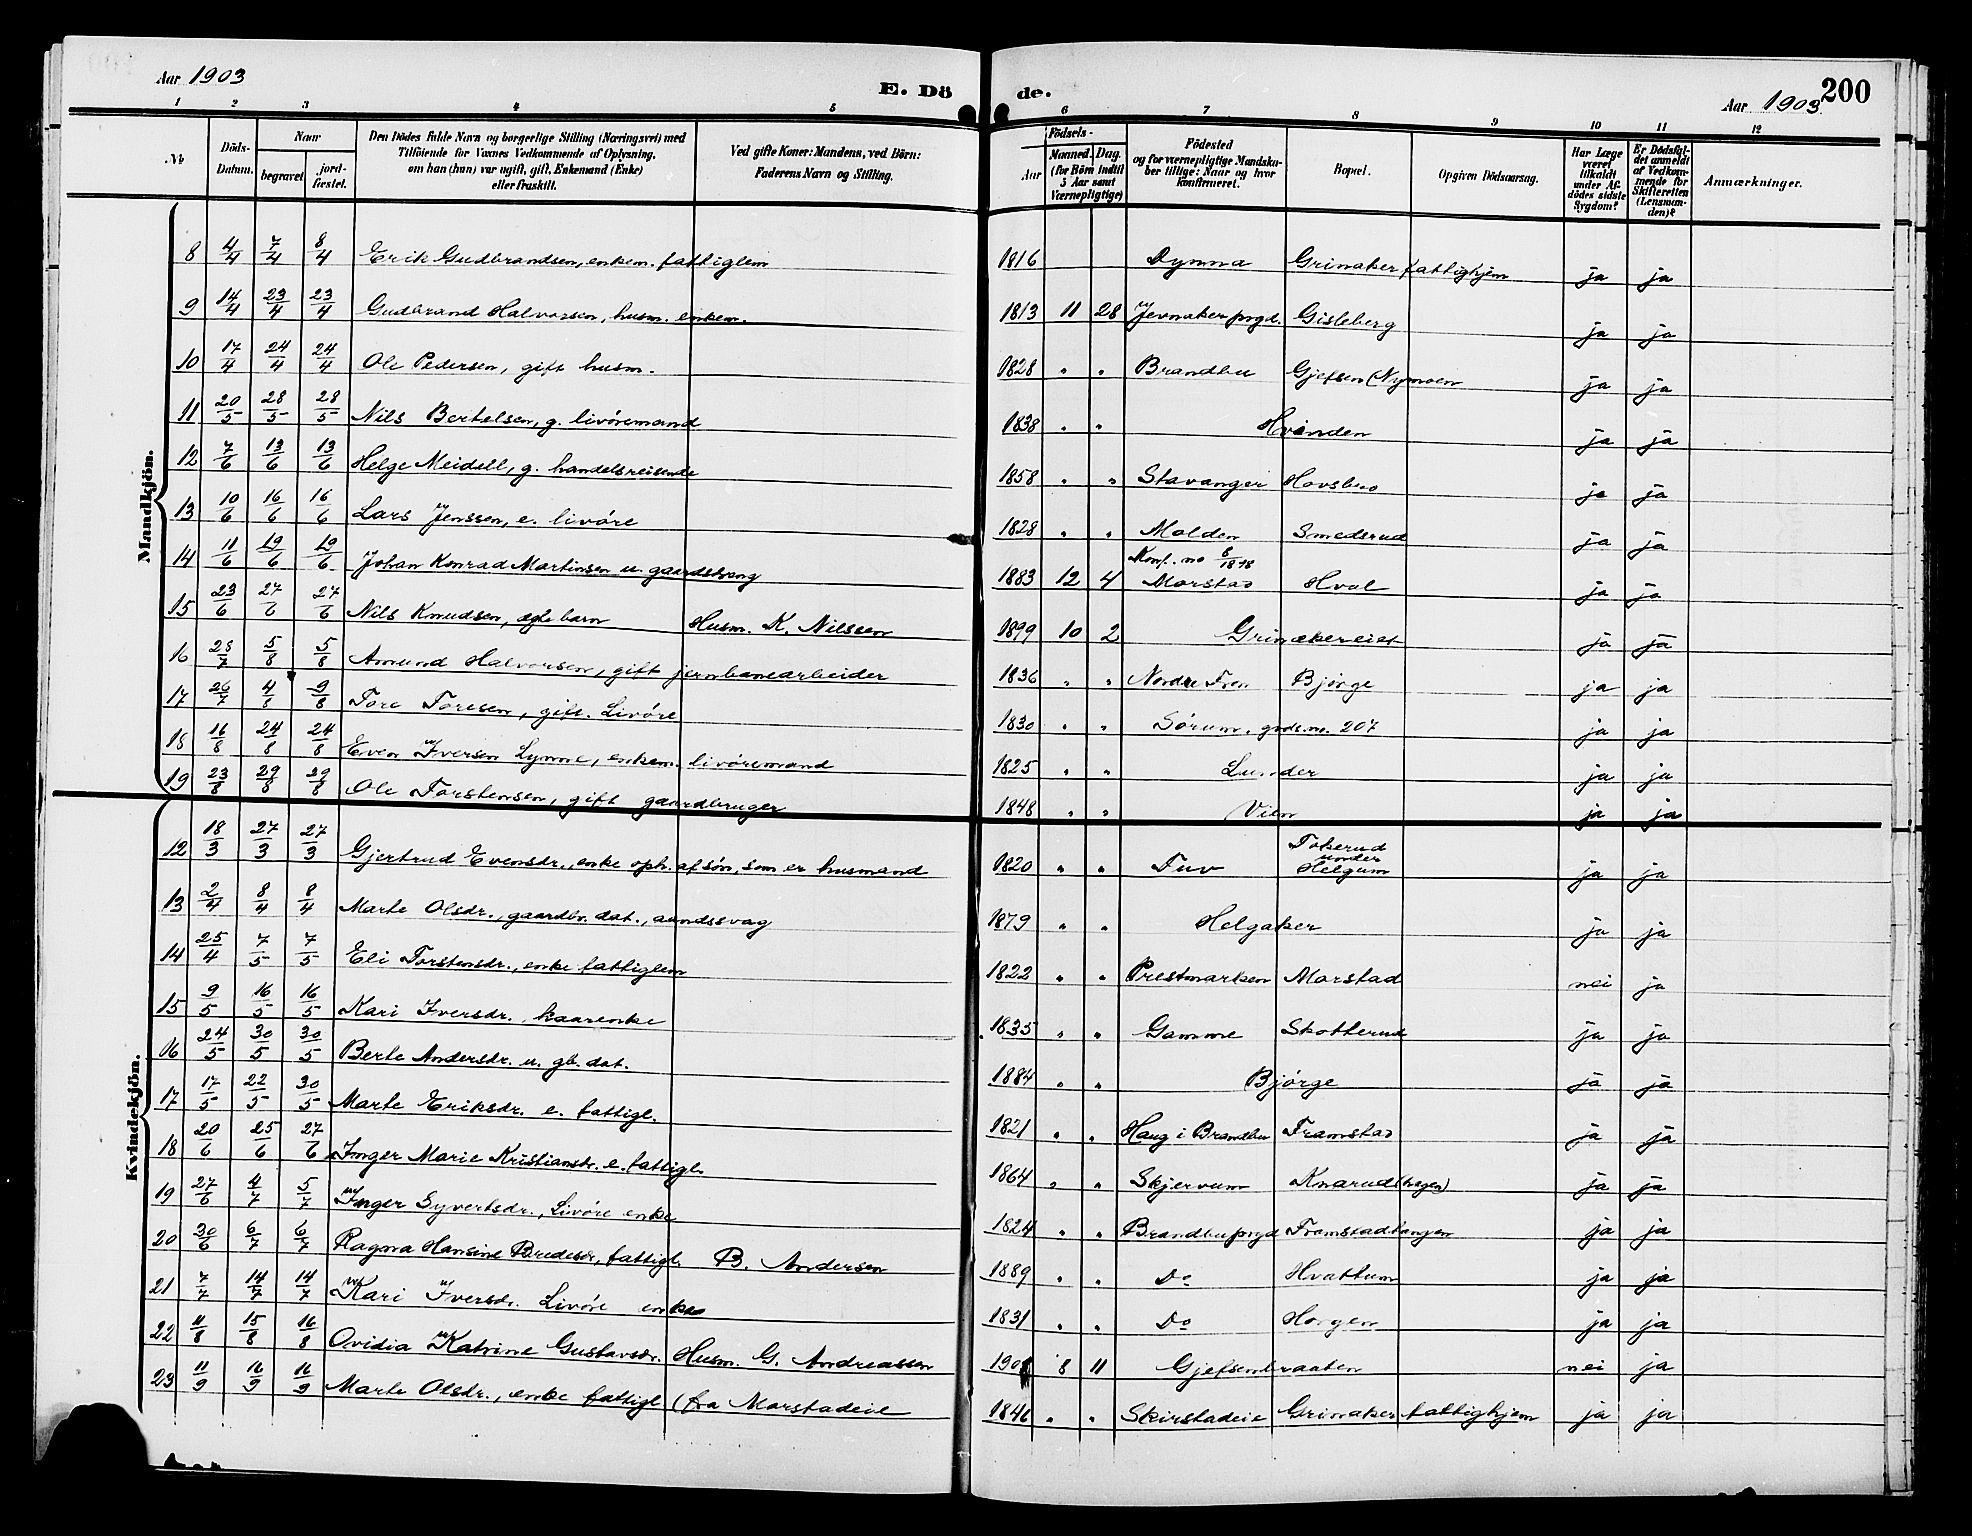 Aar 1903 E. Dö de. Aar 1903 200
1 2 3 4 5 6 7 8 9 10 11 12
№
Döds-Datum.
Naar
begravet.
jord-fæstet.
Den Dödes fulde Navn og borgerlige Stilling (Næringsvei) med
Tilföiende for Voxnes Vedkommende af Oplysning,
om han (hun) var ugift, gift, Enkemand (Enke)
eller fraskilt.
Ved gifte Koner: Mandens, ved Börn:
Faderens Navn og Stilling.
Födsels-
Aar
Maaned. Dag.
(for Börn indtil
5 Aar samt
Værnepligtige)
Födested
og for værnepligtige Mandska-
ber tillige: Naar og hvor
konfirmeret.
Bopæl.
Opgiven Dödsaarsag.
Har Læge
været
tilkaldt
under Af-
dödes sidste
Sygdom?
Er Dödsfal-
det anmeldt
af Vedkom-
mende for
Skifteretten
(Lensman-
den)?
Anmærkninger.
Mandkjön.
8 4/4 7/4 8/4 Erik Gudbrandsen, enkem. fattiglem 1816 Dynna Grinaker fattighjem ja ja
9 14/4 23/4 23/4 Gudbrand Halvorsen, husm. enkem. 1813 11 28 Jevnaker prgd. Gisleberg ja ja
10 17/4 24/4 24/4 Ole Pedersen, gift husm. 1828 " " Brandbu Gjefsen (Nymoen ja ja
11 20/5 28/5 28/5 Nils Bertelsen, g. livöremand 1838 " " Hvinden ja ja
12 7/6 13/6 13/6 Helge Meidell, g. handelsreisende 1858 " " Stavanger Hovsbro ja ja
13 10/6 16/6 16/6 Lars Jenssen, e. livöre 1828 " " Molden Smedsrud ja ja
14 11/6 19/6 19/6 Johan Konrad Martinsen u. gaardsdreng 1883 12 4 Konf. Morstad Hval ja ja
15 23/6 27/6 27/6 Nils Knudsen, ægte barn Husm. K. Nilssen 1899 10 2 Grinakereiet ja ja
16 28/7 5/8 5/8 Amund Halvorsen, gift jernbanearbeider 1836 " " Nordre Fron Bjørge ja ja
17 26/7 4/8 9/8 Tore Toresen, gift. Livöre 1830 " " Sörum, gnds. no. 207 ja ja
18 16/8 24/8 24/8 Even Iversen Lynne, enkem. livöremand 1825 " " Lunder ja ja
19 23/8 29/8 29/8 Ole Torstensen, gift gaardbruger 1848 " " Vien ja ja
Kvindekjön.
12 18/3 27/3 27/3 Gjertrud Evensdr., enke oph. af sön, som er husmand 1820 " " Tuv Tokerud under Helgum ja ja
13 2/4 8/4 8/4 Marte Olsdr., gaardbr. dat., aandssvag 1879 " " Helgaker ja ja
14 25/4 7/5 7/5 Eli Torstensdr., enke fattiglem 1822 " " Prestmarken Morstad nei ja
15 9/5 16/5 16/5 Kari Iversdr., kaarenke 1835 " " Gamme Skotterud ja ja
16 24/5 30/5 30/5 Berte Andersdr. u. gb. dat. 1884 " " Bjørge ja ja
17 17/5 22/5 30/5 Marte Eriksdr. e. fattigl. 1821 " " Haug i Brandbu Framstad ja ja
18 20/6 25/6 27/6 Inger Marie Kristiansdr. e. fattigl. 1864 " " Skjervum Knarud (hagen) ja ja
19 27/6 4/7 5/7 Inger Syvertsdr., Livöre enke 1824 " " Brandbu prgd Framstadtangen ja ja
20 30/6 6/7 6/7 Ragna Hansine Bredesdr, fattigl. B. Andersen 1889 " " Do Hvattum ja ja
21 7/7 14/7 14/7 Kari Iversdr. Livöre enke 1831 " " Do Horgen ja ja
22 11/8 15/8 16/8 Ovidia Katrine Gustavsdr. Husm. G. Andreassen 8 11 Gjefsenbraaten nei ja
23 11/9 16/9 16/9 Marte Olsdr., enke fattigl (fra Morstadeie 1846 " " Skirstadeie Grinaker fattighjem ja ja